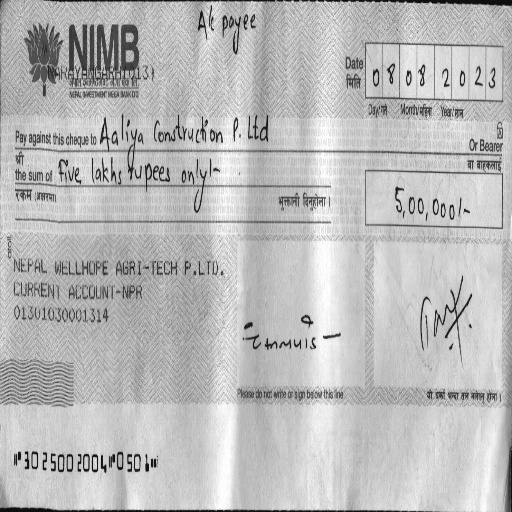 A/c payee
NIMB
NEPAL INVESTMENT MEGA BANK LTD
Date
मिति
0 8 0 8 2 0 2 3
Day/गते Month/महिना Year/साल
Pay against this cheque to Aaliya Construction P. Ltd
Or Bearer
श्री
वा वाहकलाई
the sum of five lakhs rupees only/-
रकम (अक्षरमा)
भुक्तानी दिनुहोला।
5,00,000/-
NEPAL WELLHOPE AGRI-TECH P.LTD.
CURRENT ACCOUNT-NPR
01301030001314
Please do not write or sign below this line
⑈3025002004⑈0501⑈